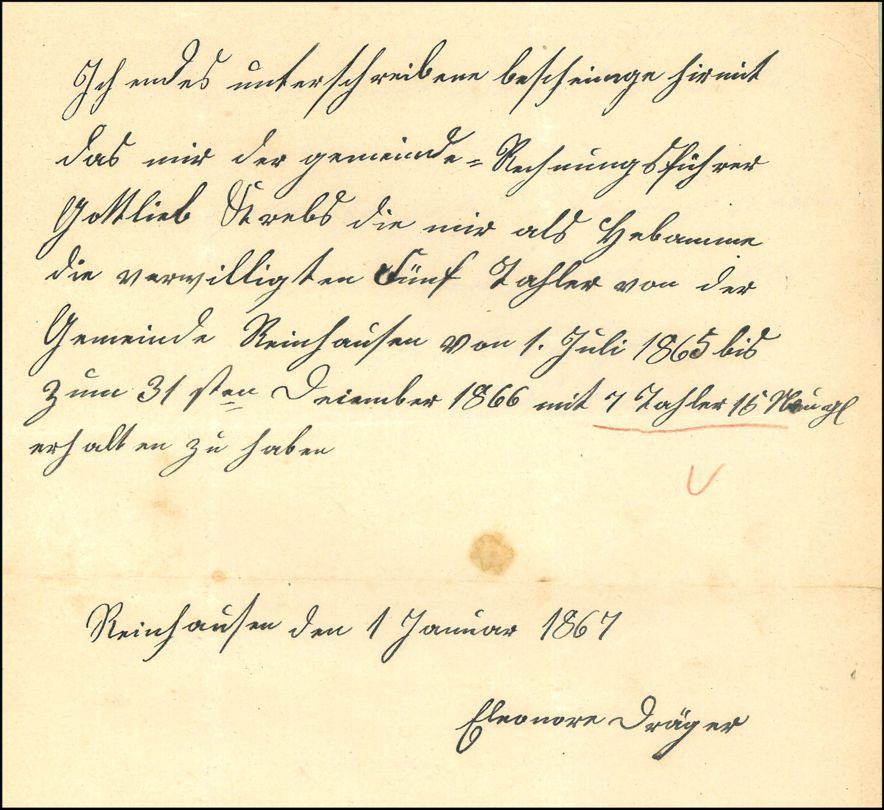 Ich endes unterschreibene bescheinige hirmit
das mir der gemeinde=Rechnungsführer
Gottlieb Krebs die mir als Hebamme
die verwilligten Fünf Tahler von der
Gemeinde Reinhausen von 1. Juli 1865 bis
zum 31 sten December 1866 mit 7 Tahler 15 Neugl
erhalten zu haben
Reinhausen den 1 Januar 1867
Eleonore Dräger